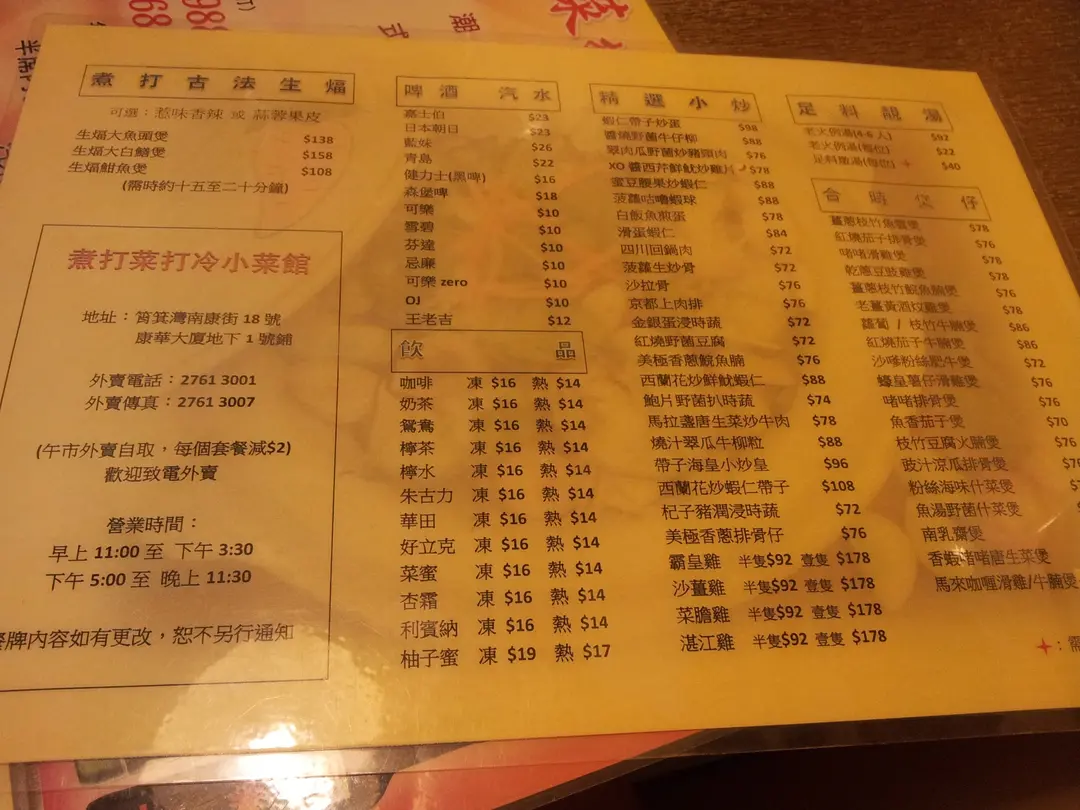 煮打古法生煏
可選：惹味香辣 或 蒜蓉果皮
生煏大魚頭煲 $138
生煏大白鱔煲 $158
生煏鮒魚煲 $108
(需時約十五至二十分鐘)
煮打菜打冷小菜館
地址：筲箕灣南康街 18 號
康華大廈地下 1 號鋪
外賣電話：2761 3001
外賣傳真：2761 3007
(午市外賣自取，每個套餐減$2)
歡迎致電外賣
營業時間：
早上 11:00 至 下午 3:30
下午 5:00 至 晚上 11:30
牌內容如有更改，恕不另行通知
啤酒 汽水
嘉士伯 $23
日本朝日 $23
藍妹 $26
青島 $22
健力士(黑啤) $16
森堡啤 $18
可樂 $10
雪碧 $10
芬達 $10
忌廉 $10
可樂 zero $10
OJ $10
王老吉 $12
飲品
咖啡 凍 $16 熱 $14
奶茶 凍 $16 熱 $14
鴛鴦 凍 $16 熱 $14
檸茶 凍 $16 熱 $14
檸水 凍 $16 熱 $14
朱古力 凍 $16 熱 $14
華田 凍 $16 熱 $14
好立克 凍 $16 熱 $14
菜蜜 凍 $16 熱 $14
杏霜 凍 $16 熱 $14
利賓納 凍 $16 熱 $14
柚子蜜 凍 $19 熱 $17
精選小炒
蝦仁帶子炒蛋 $98
醬燒野菌牛仔柳 $88
翠肉瓜野菌炒豬頸肉 $76
XO 醬西芹鮮魷炒雞片 $78
蜜豆腰果炒蝦仁 $88
菠蘿咕嚕蝦球 $88
白飯魚煎蛋 $78
滑蛋蝦仁 $84
四川回鍋肉 $72
菠蘿生炒骨 $72
沙拉骨 $76
京都上肉排 $76
金銀蛋浸時蔬 $72
紅燒野菌豆腐 $72
美極香蔥鯇魚腩 $76
西蘭花炒鮮魷蝦仁 $88
鮑片野菌扒時蔬 $74
馬拉盞唐生菜炒牛肉 $78
燒汁翠瓜牛柳粒 $88
帶子海皇小炒皇 $96
西蘭花炒蝦仁帶子 $108
杞子豬潤浸時蔬 $72
美極香蔥排骨仔 $76
霸皇雞 半隻$92 壹隻 $178
沙薑雞 半隻$92 壹隻 $178
菜膽雞 半隻$92 壹隻 $178
湛江雞 半隻$92 壹隻 $178
足料靚湯
老火例湯(4-6 人) $92
老火例湯(每位) $22
足料燉湯(每位) $40
合時煲仔
薑蔥枝竹魚蟹煲 $78
紅燒茄子排骨煲 $76
啫啫滑雞煲 $78
乾蔥豆豉雞煲 $78
薑蔥枝竹鯇魚腩煲 $76
老薑黃酒双雞煲 $78
蘿蔔 / 枝竹牛腩煲 $86
紅燒茄子牛腩煲 $86
沙嗲粉絲肥牛煲 $72
蠔皇薯仔滑雞煲 $76
啫啫排骨煲 $76
魚香茄子煲 $70
枝竹豆腐火腩煲 $76
豉汁涼瓜排骨煲
粉絲海味什菜煲
魚湯野菌什菜煲
南乳齋煲
香蝦啫啫唐生菜煲
馬來咖喱滑雞/牛腩煲